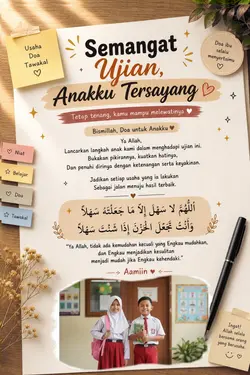 Usaha
Doa
Tawakal
Doa ibu
selalu
menyertaimu
Semangat
Ujian,
Anakku Tersayang
Tetap tenang, kamu mampu melewatinya
Bismillah, Doa untuk Anakku
Ya Allah,
Lancarkan langkah anak kami dalam menghadapi ujian ini.
Bukakan pikirannya, kuatkan hatinya,
Dan penuhi dirinya dengan ketenangan serta keyakinan.
Jadikan setiap usaha yang ia lakukan
Sebagai jalan menuju hasil terbaik.
Niat
Belajar
Doa
Tawakal
اَللّٰهُمَّ لَا سَهْلَ إِلَّا مَا جَعَلْتَهُ سَهْلًا
وَأَنْتَ تَجْعَلُ الْحَزْنَ إِذَا شِئْتَ سَهْلًا
"Ya Allah, tidak ada kemudahan kecuali yang Engkau mudahkan,
dan Engkau menjadikan kesulitan
menjadi mudah jika Engkau kehendaki."
Aamiin
Ingat!
Allah selalu
bersama orang
yang berusaha.